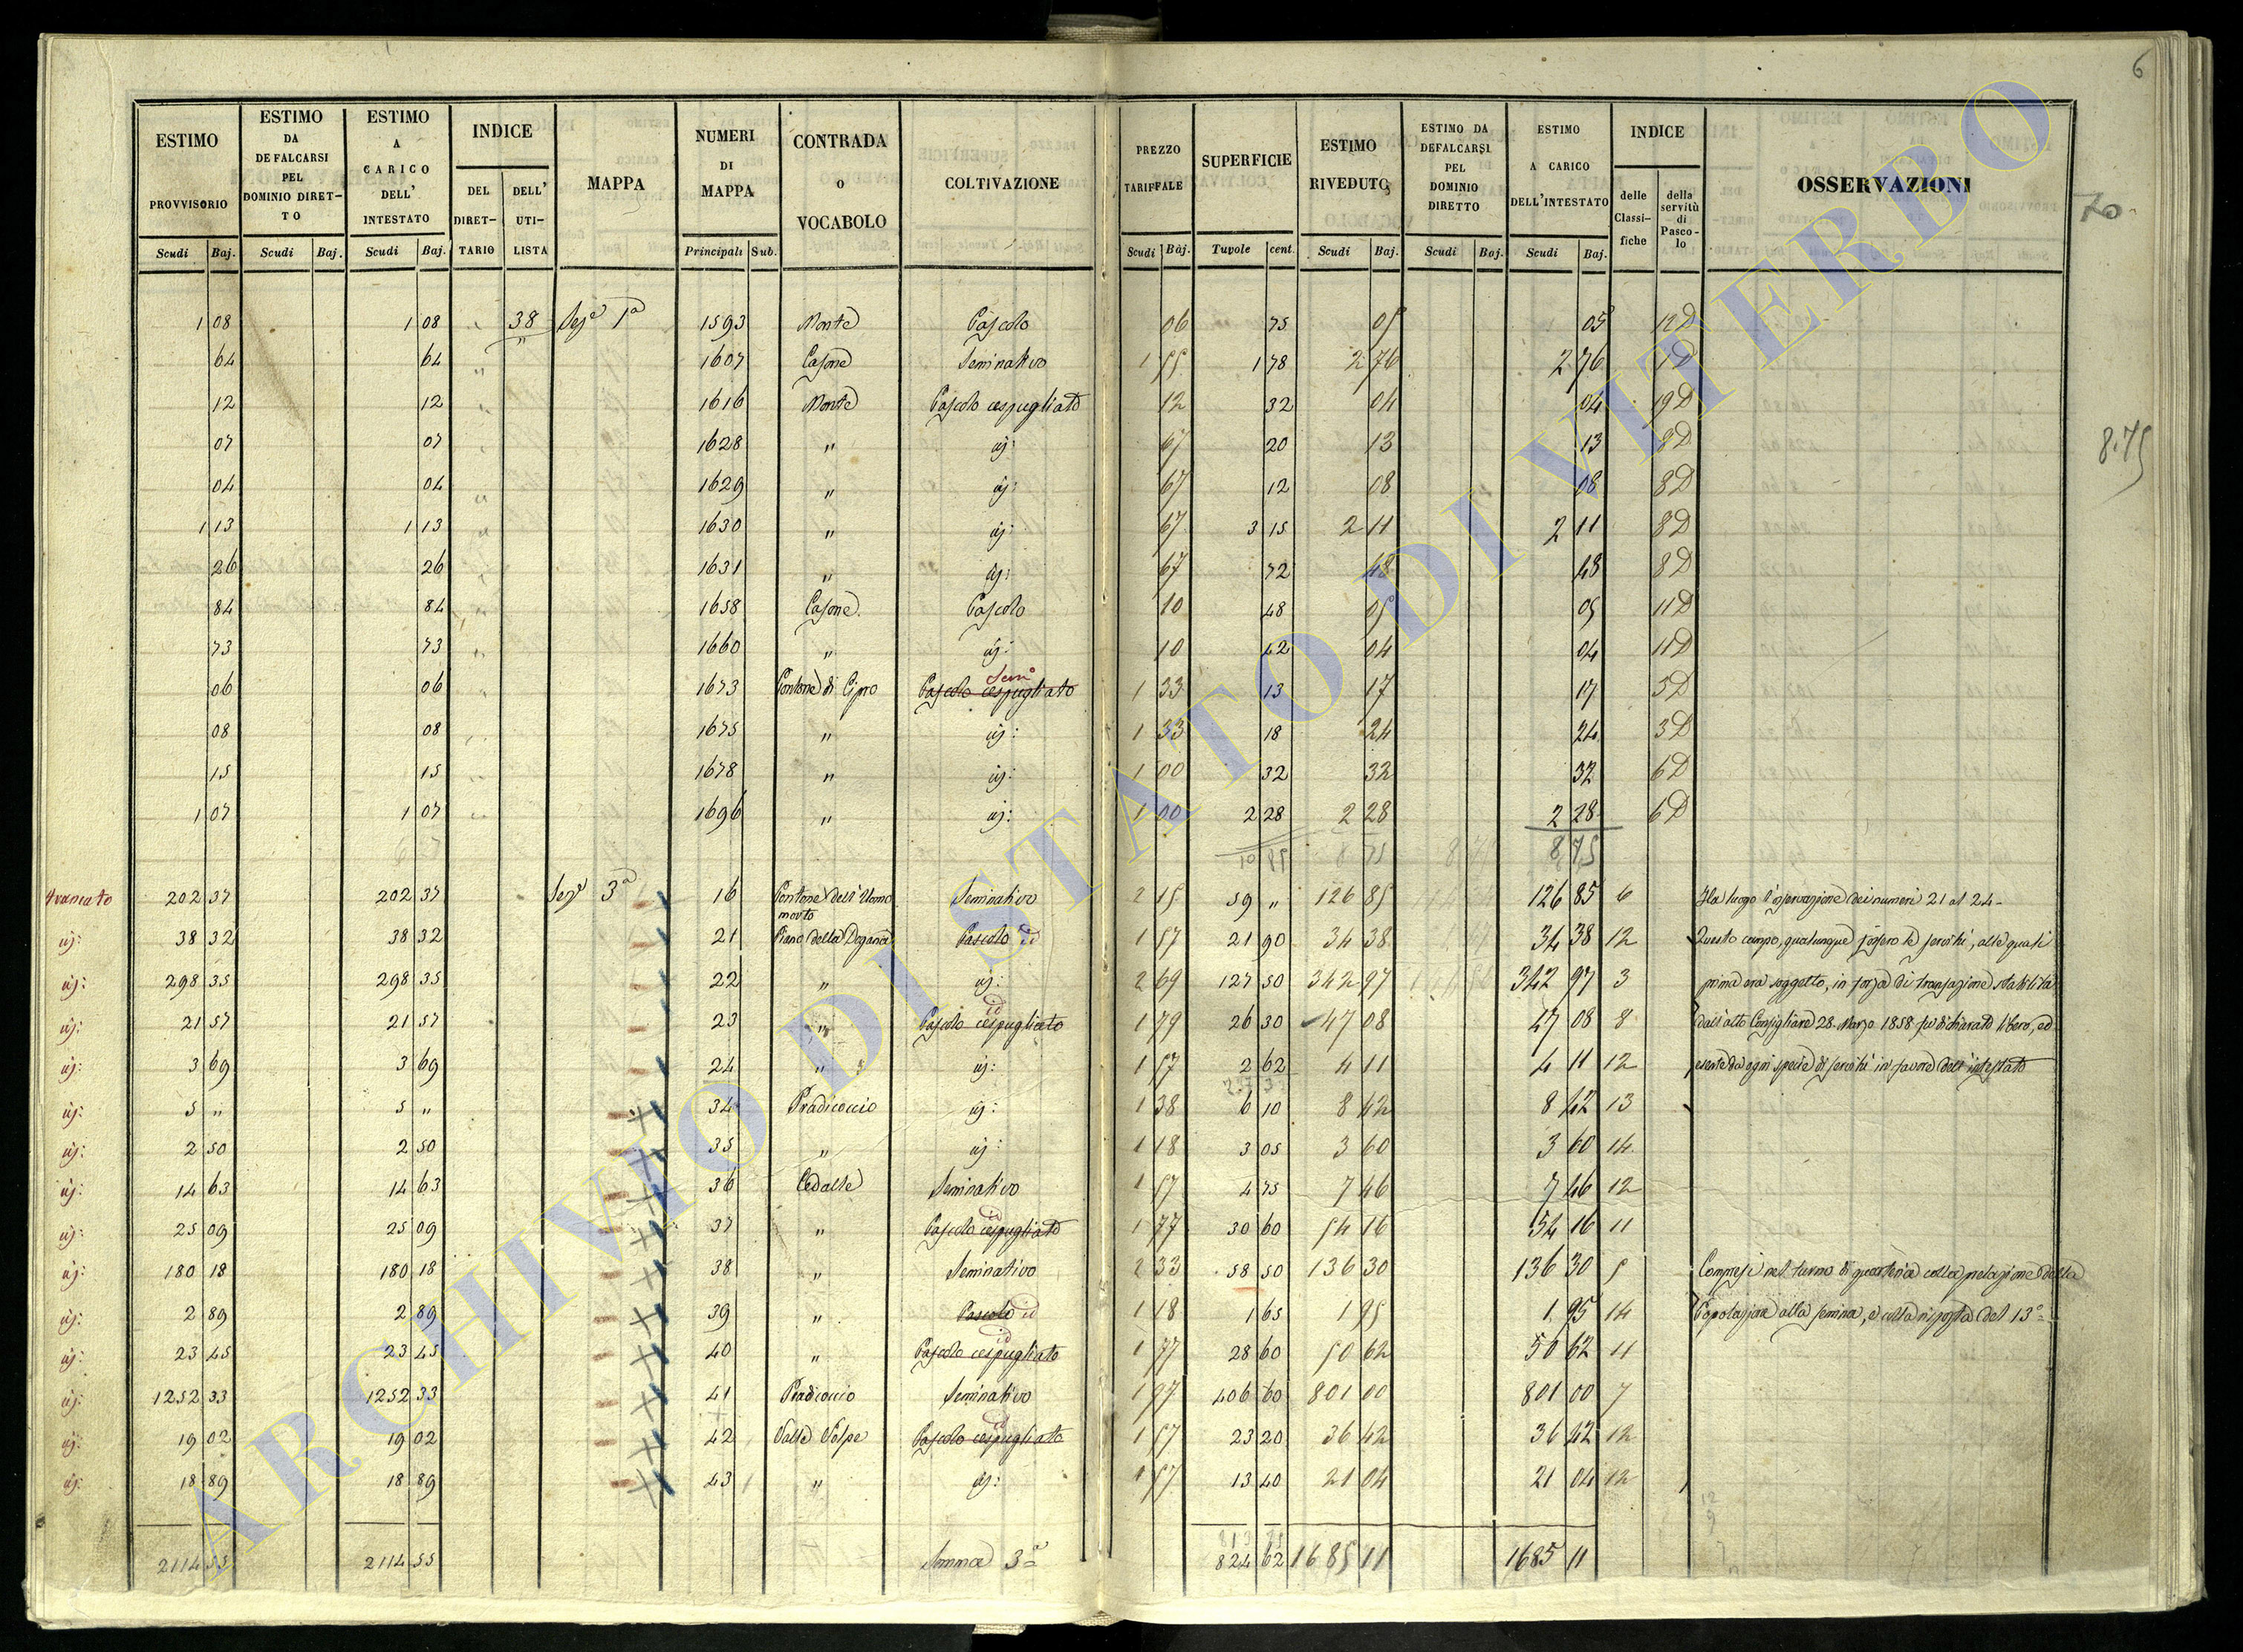 6
ESTIMO PROVVISORIO
ESTIMO DA DEFALCARSI PEL DOMINIO DIRETTO
ESTIMO A CARICO DELL' INTESTATO
INDICE
DEL DIRETTARIO
DELL' UTILISTA
MAPPA
NUMERI DI MAPPA
CONTRADA O VOCABOLO
COLTIVAZIONE
PREZZO TARIFFALE
SUPERFICIE
ESTIMO RIVEDUTO
ESTIMO DA DEFALCARSI PEL DOMINIO DIRETTO
ESTIMO A CARICO DELL'INTESTATO
INDICE
delle Classifiche
della servitù di Pascolo
OSSERVAZIONI
70
Scudi Baj. Scudi Baj. Scudi Baj. Principali Sub. Scudi Baj. Tavole cent. Scudi Baj. Scudi Baj. Scudi Baj.
1 08 1 08 " 38 Sez.e 1a 1593 Monte Pascolo 06 75 05 05 12D
64 64 " " 1607 Casone Seminativo 1 55 1 78 2 76 2 76 1D
12 12 " 1616 Monte Pascolo cespugliato 12 32 04 04 19D
07 07 " 1628 " id: 67 20 13 13 8D
8.75
04 04 " 1629 " id: 67 12 08 08 8D
1 13 1 13 " 1630 " id: 67 3 15 2 11 2 11 8D
26 26 " 1631 " id: 67 72 48 48 8D
84 84 " 1658 Casone Pascolo 10 48 05 05 11D
73 73 " 1660 " id: 10 42 04 04 11D
06 06 " 1673 Pontone di Cipro Pascolo cespugliato Sem.o 1 33 13 17 17 3D
08 08 " 1675 " id: 1 33 18 24 24 3D
15 15 " 1678 " id: 1 00 32 32 32 6D
1 07 1 07 " 1696 " id: 1 00 2 28 2 28 2 28 6D
10 85 8 75 8 75 8 75
Avancato 202 37 202 37 Sez.e 3a 16 Pontone dell'Uomo morto Seminativo 2 15 59 " 126 85 126 85 6 Ha luogo l'osservazione dei numeri 21 al 24
id: 38 32 38 32 21 Piano della Dogana Pascolo id 1 57 21 90 34 38 34 38 12 Questo campo, qualunque fossero le servitù, alle quali
id: 298 35 298 35 22 " id: 2 69 127 50 342 97 342 97 3 prima era soggetto, in forza di transazione stabilita
id: 21 57 21 57 23 " Pascolo cespugliato id 1 79 26 30 47 08 47 08 8 dall'atto Consigliare 28 Marzo 1858 fu dichiarato libero, ed
id: 3 69 3 69 24 " id: 1 57 2 62 4 11 4 11 12 esente da ogni specie di servitù in favore dell'intestato
id: 5 " 5 " 34 Pradicoccio id: 1 38 6 10 8 42 8 42 13
id: 2 50 2 50 35 " id: 1 18 3 05 3 60 3 60 14
id: 14 63 14 63 36 Cedalle Seminativo 1 57 4 75 7 46 7 46 12
id: 25 09 25 09 37 " Pascolo cespugliato id 1 77 30 60 54 16 54 16 11
id: 180 18 180 18 38 " Seminativo 2 33 58 50 136 30 136 30 5 Compresi nel turno di quarteria colla prelazione della
id: 2 89 2 89 39 " Pascolo id 1 18 1 65 1 95 1 95 14 Popolazione alla semina, e colla risposta del 13°
id: 23 45 23 45 40 " Pascolo cespugliato id 1 77 28 60 50 62 50 62 11
id: 1252 33 1252 33 41 Pradicoccio Seminativo 1 97 406 60 801 00 801 00 7
id: 19 02 19 02 42 Valle Volpe Pascolo cespugliato id 1 57 23 20 36 42 36 42 12
id: 18 89 18 89 43 " id: 1 57 13 40 21 04 21 04 12
2114 55 2114 55 Somma 3a 824 62 1685 11 1685 11
ARCHIVIO DI STATO DI VITERBO